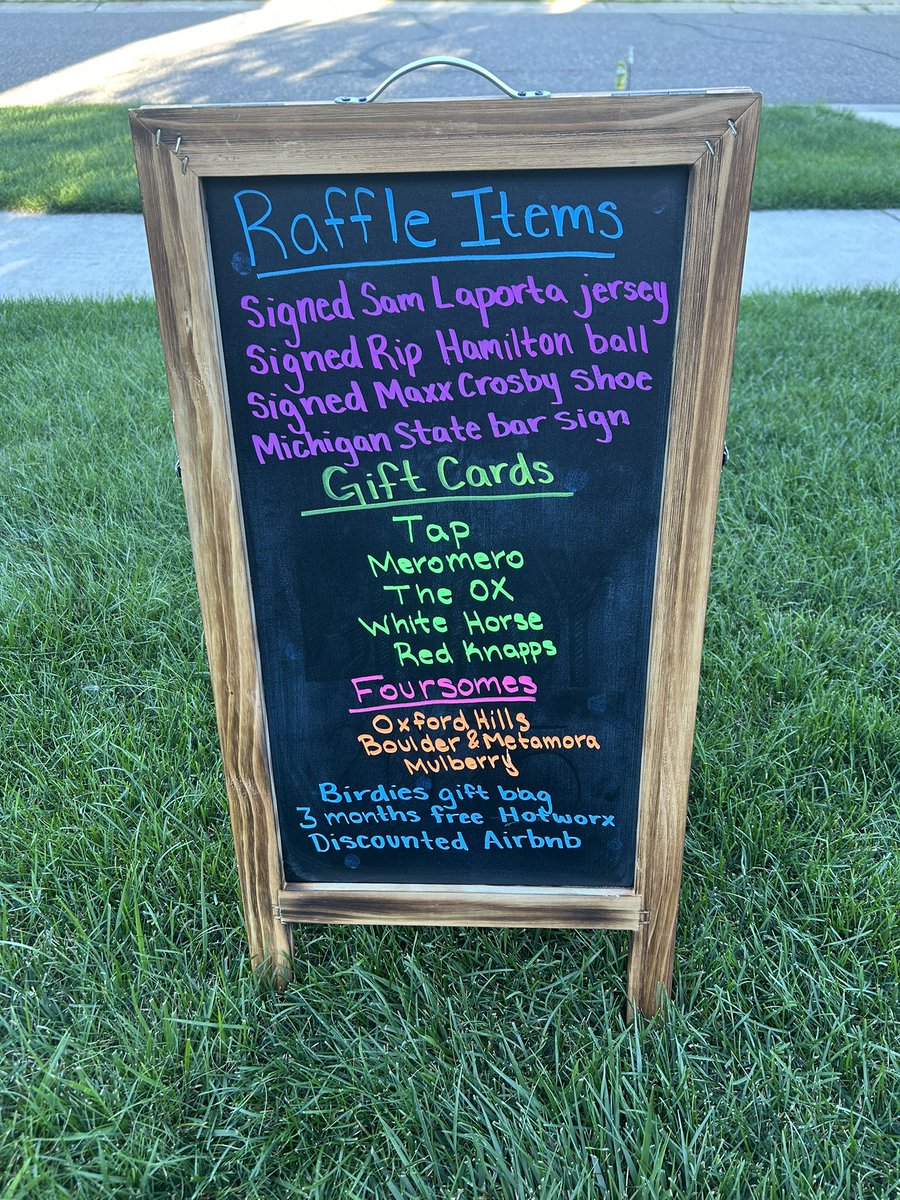 Raffle Items
Signed Sam Laporta jersey
Signed Rip Hamilton ball
Signed Maxx Crosby shoe
Michigan State bar sign
Gift Cards
Tap
Meromero
The OX
White Horse
Red Knapps
Foursomes
Oxford Hills
Boulder & Metamora
Mulberry
Birdies gift bag
3 months free Hotworx
Discounted Airbnb